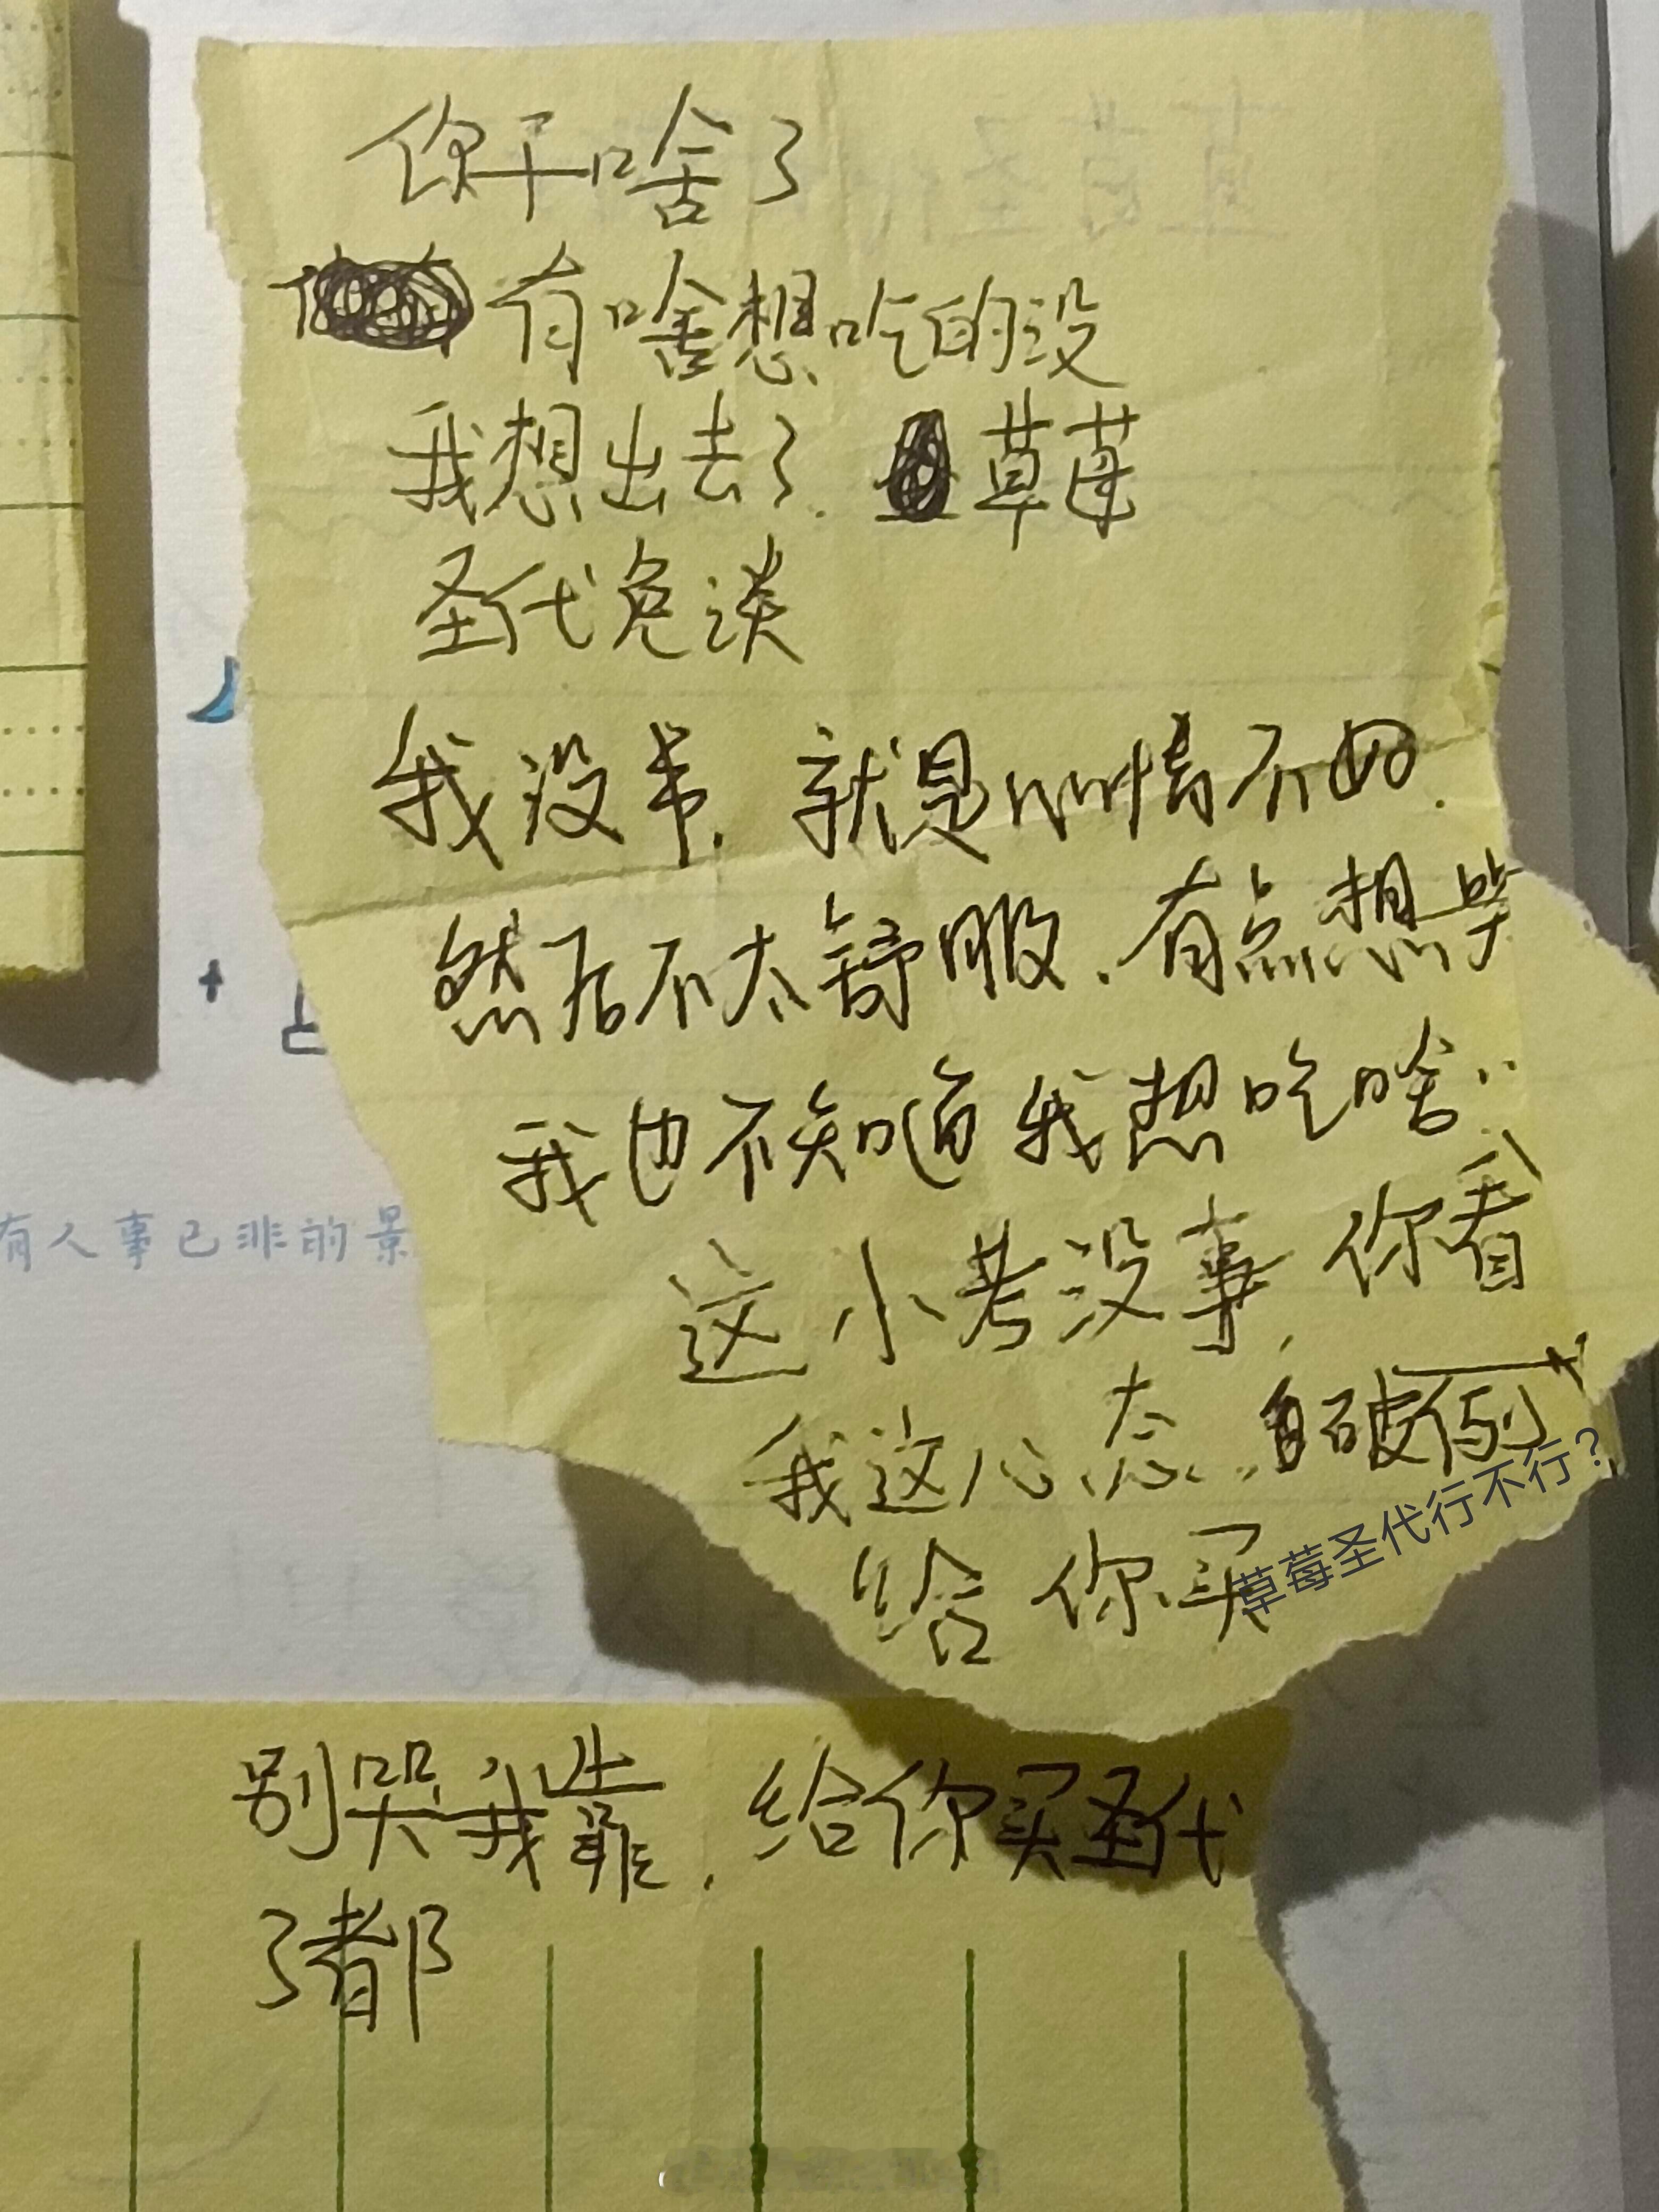 你干啥了
有啥想吃的没
我想出去了.草莓
圣代免谈
我没事.就是心情不好.
然后不太舒服.有点想哭
我也不知道我想吃啥..
这小考没事,你看
我这心态..自破例
草莓圣代行不行?
给你买
别哭我靠.给你买圣代
了都
有人事已非的景